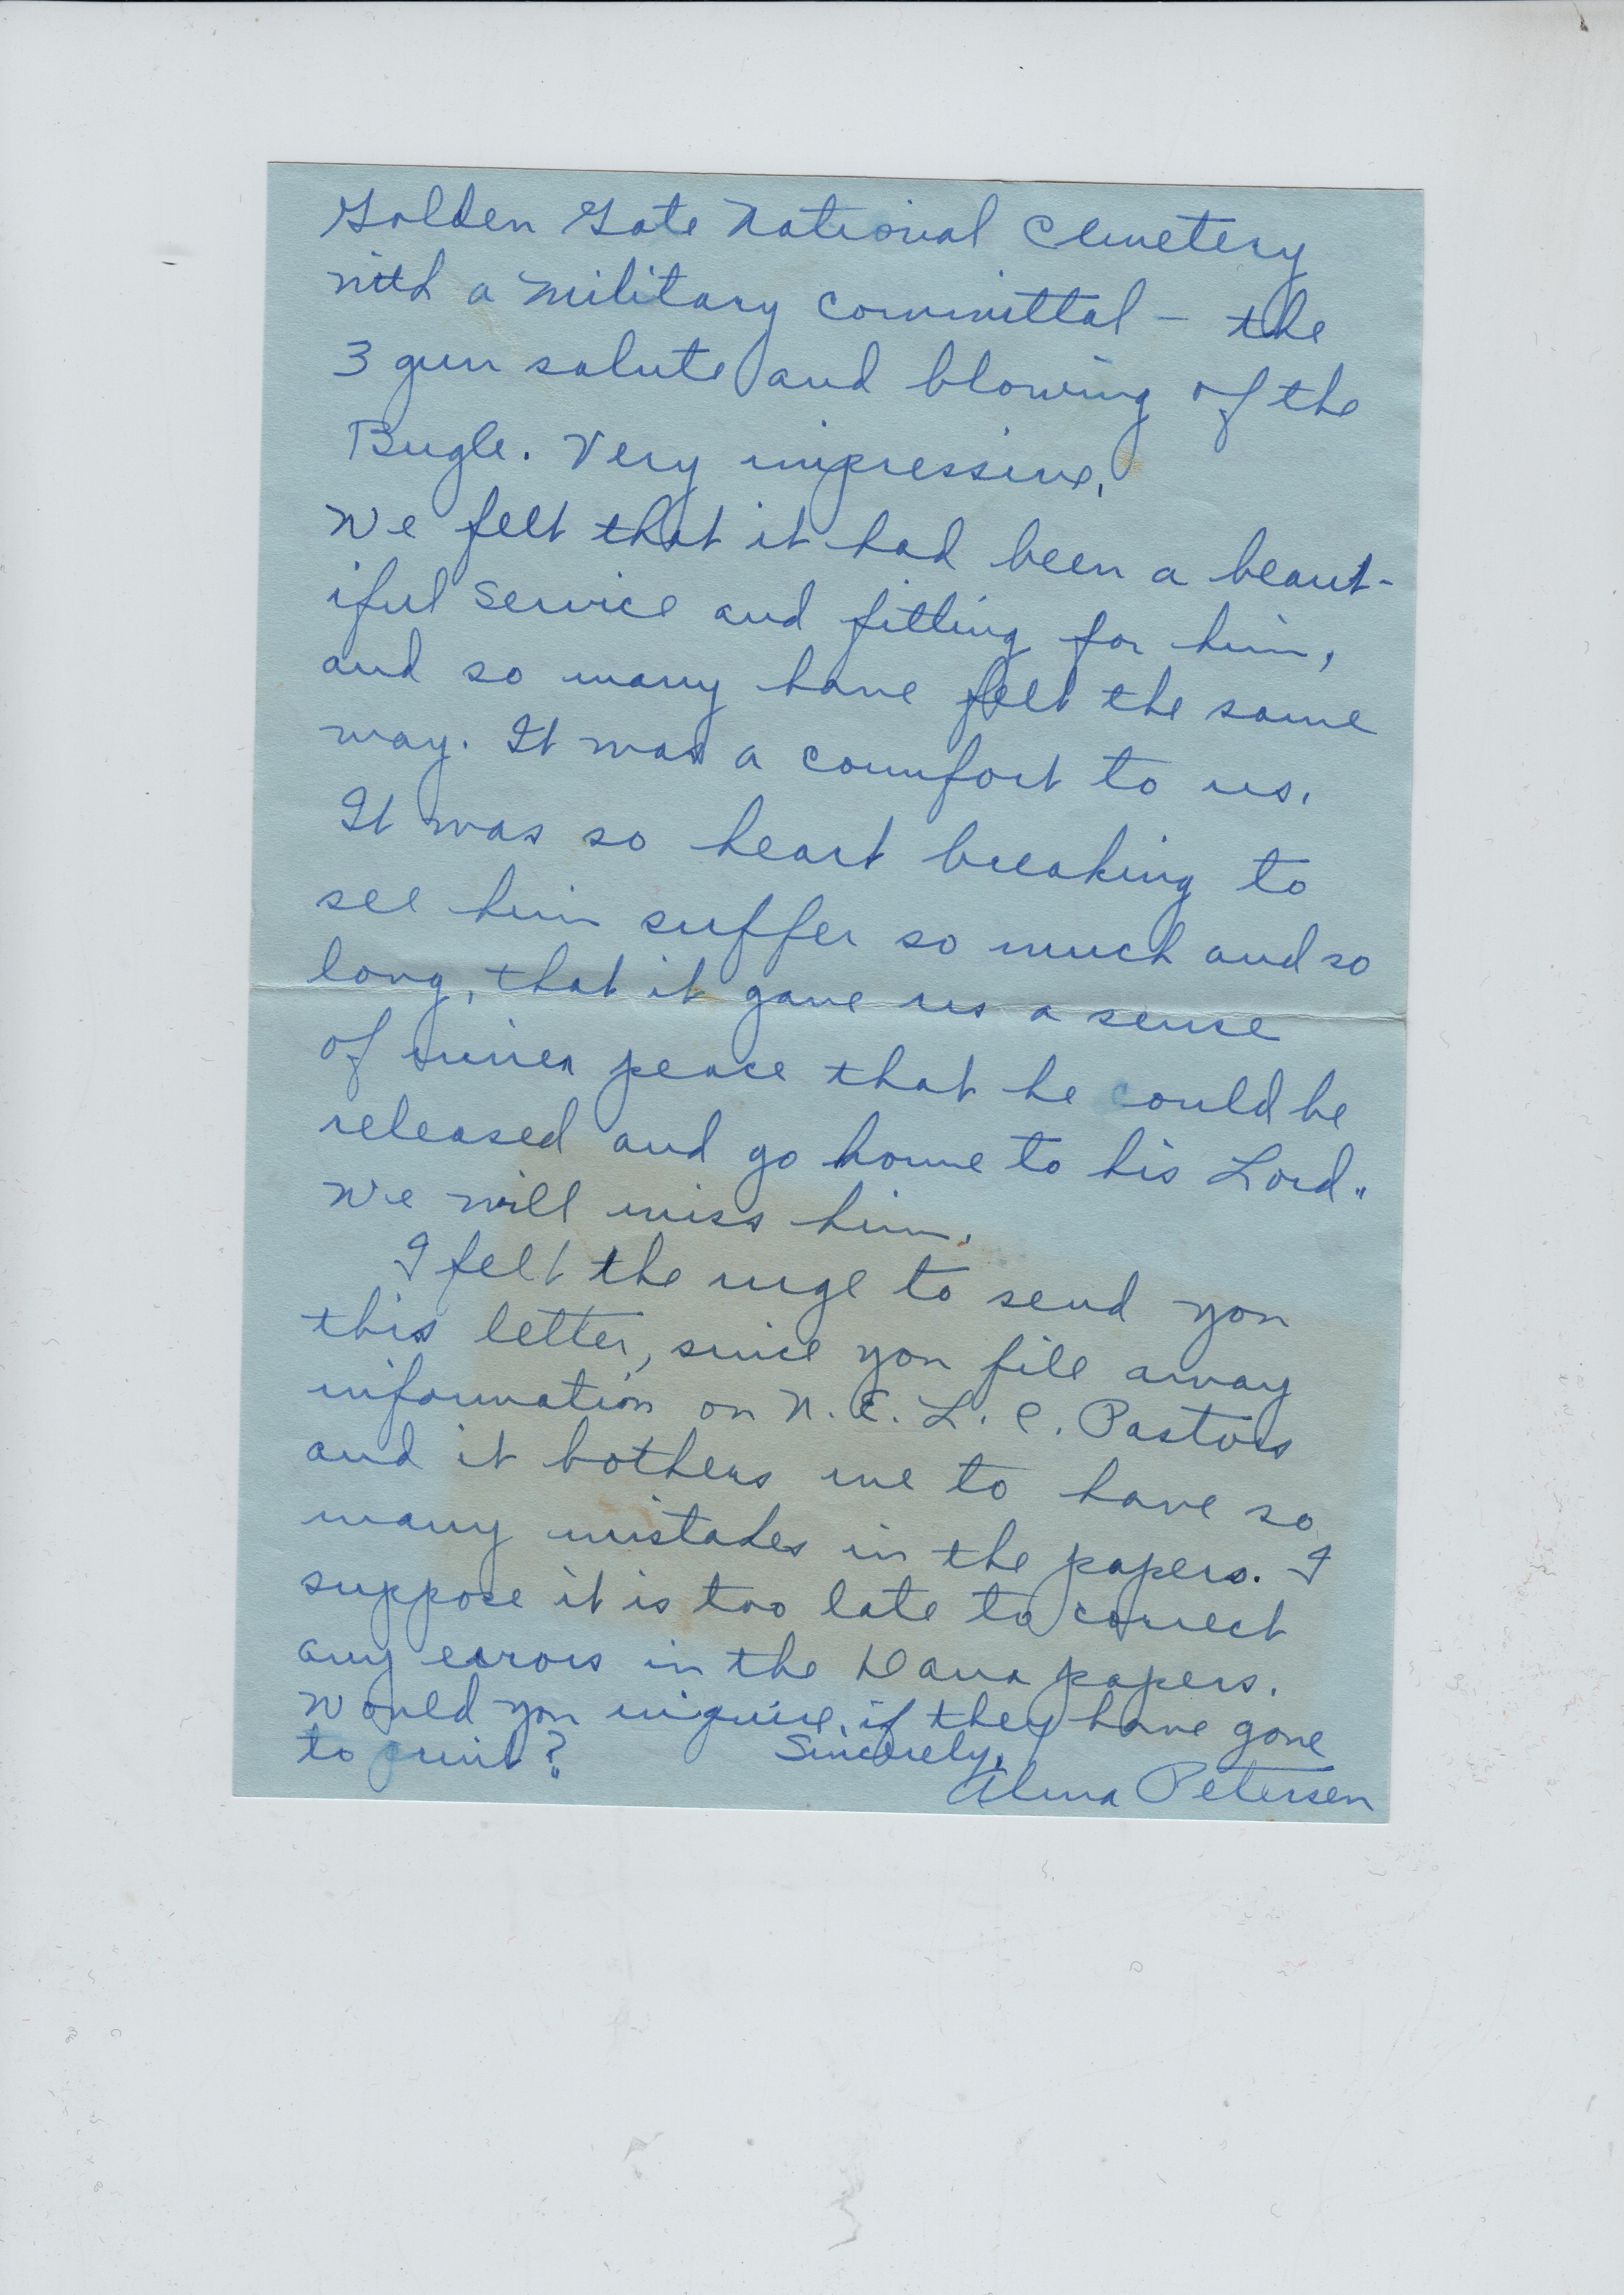 Golden Gate National Cemetery
with a military committal - the
3 gun salute and blowing of the
Bugle. Very impressive.
We felt that it had been a beaut-
iful service and fitting for him,
and so many have felt the same
way. It was a comfort to us.
It was so heart breaking to
see him suffer so much and so
long, that it gave us a sense
of inner peace that he could be
released and go home to his Lord.
We will miss him.
I felt the urge to send you
this letter, since you file away
information on N. E. L. C. Pastors
and it bothers me to have so
many mistakes in the papers. I
suppose it is too late to correct
any errors in the Dana papers.
Would you inquire, if they have gone
to print?
Sincerely,
Alma Petersen